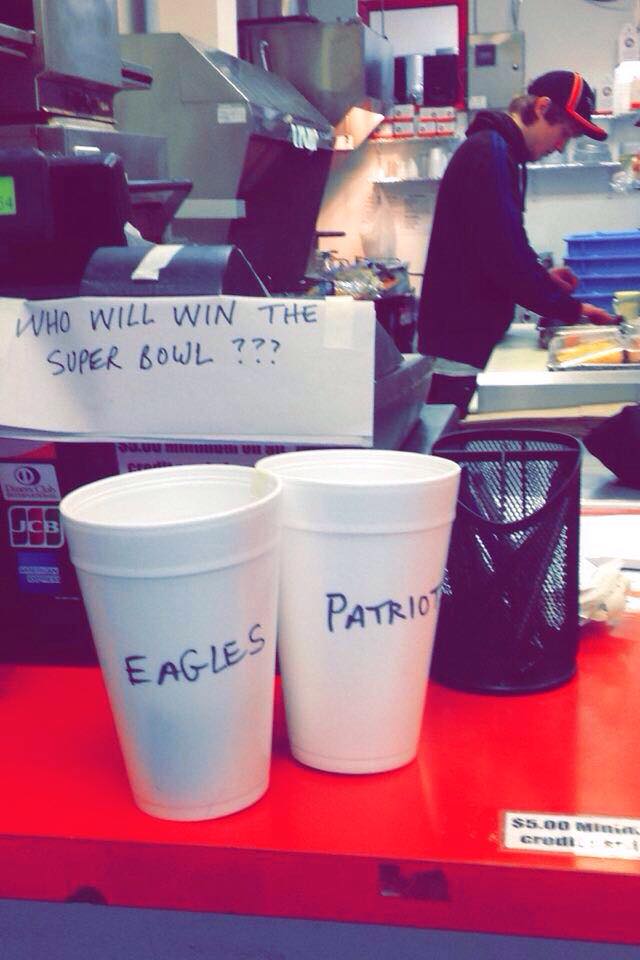 WHO WILL WIN THE
SUPER BOWL ???
$5.00 minimum on all
credit
Diners Club
INTERNATIONAL
JCB
AMERICAN
EXPRESS
EAGLES
PATRIOT
$5.00 Minim
credi
54